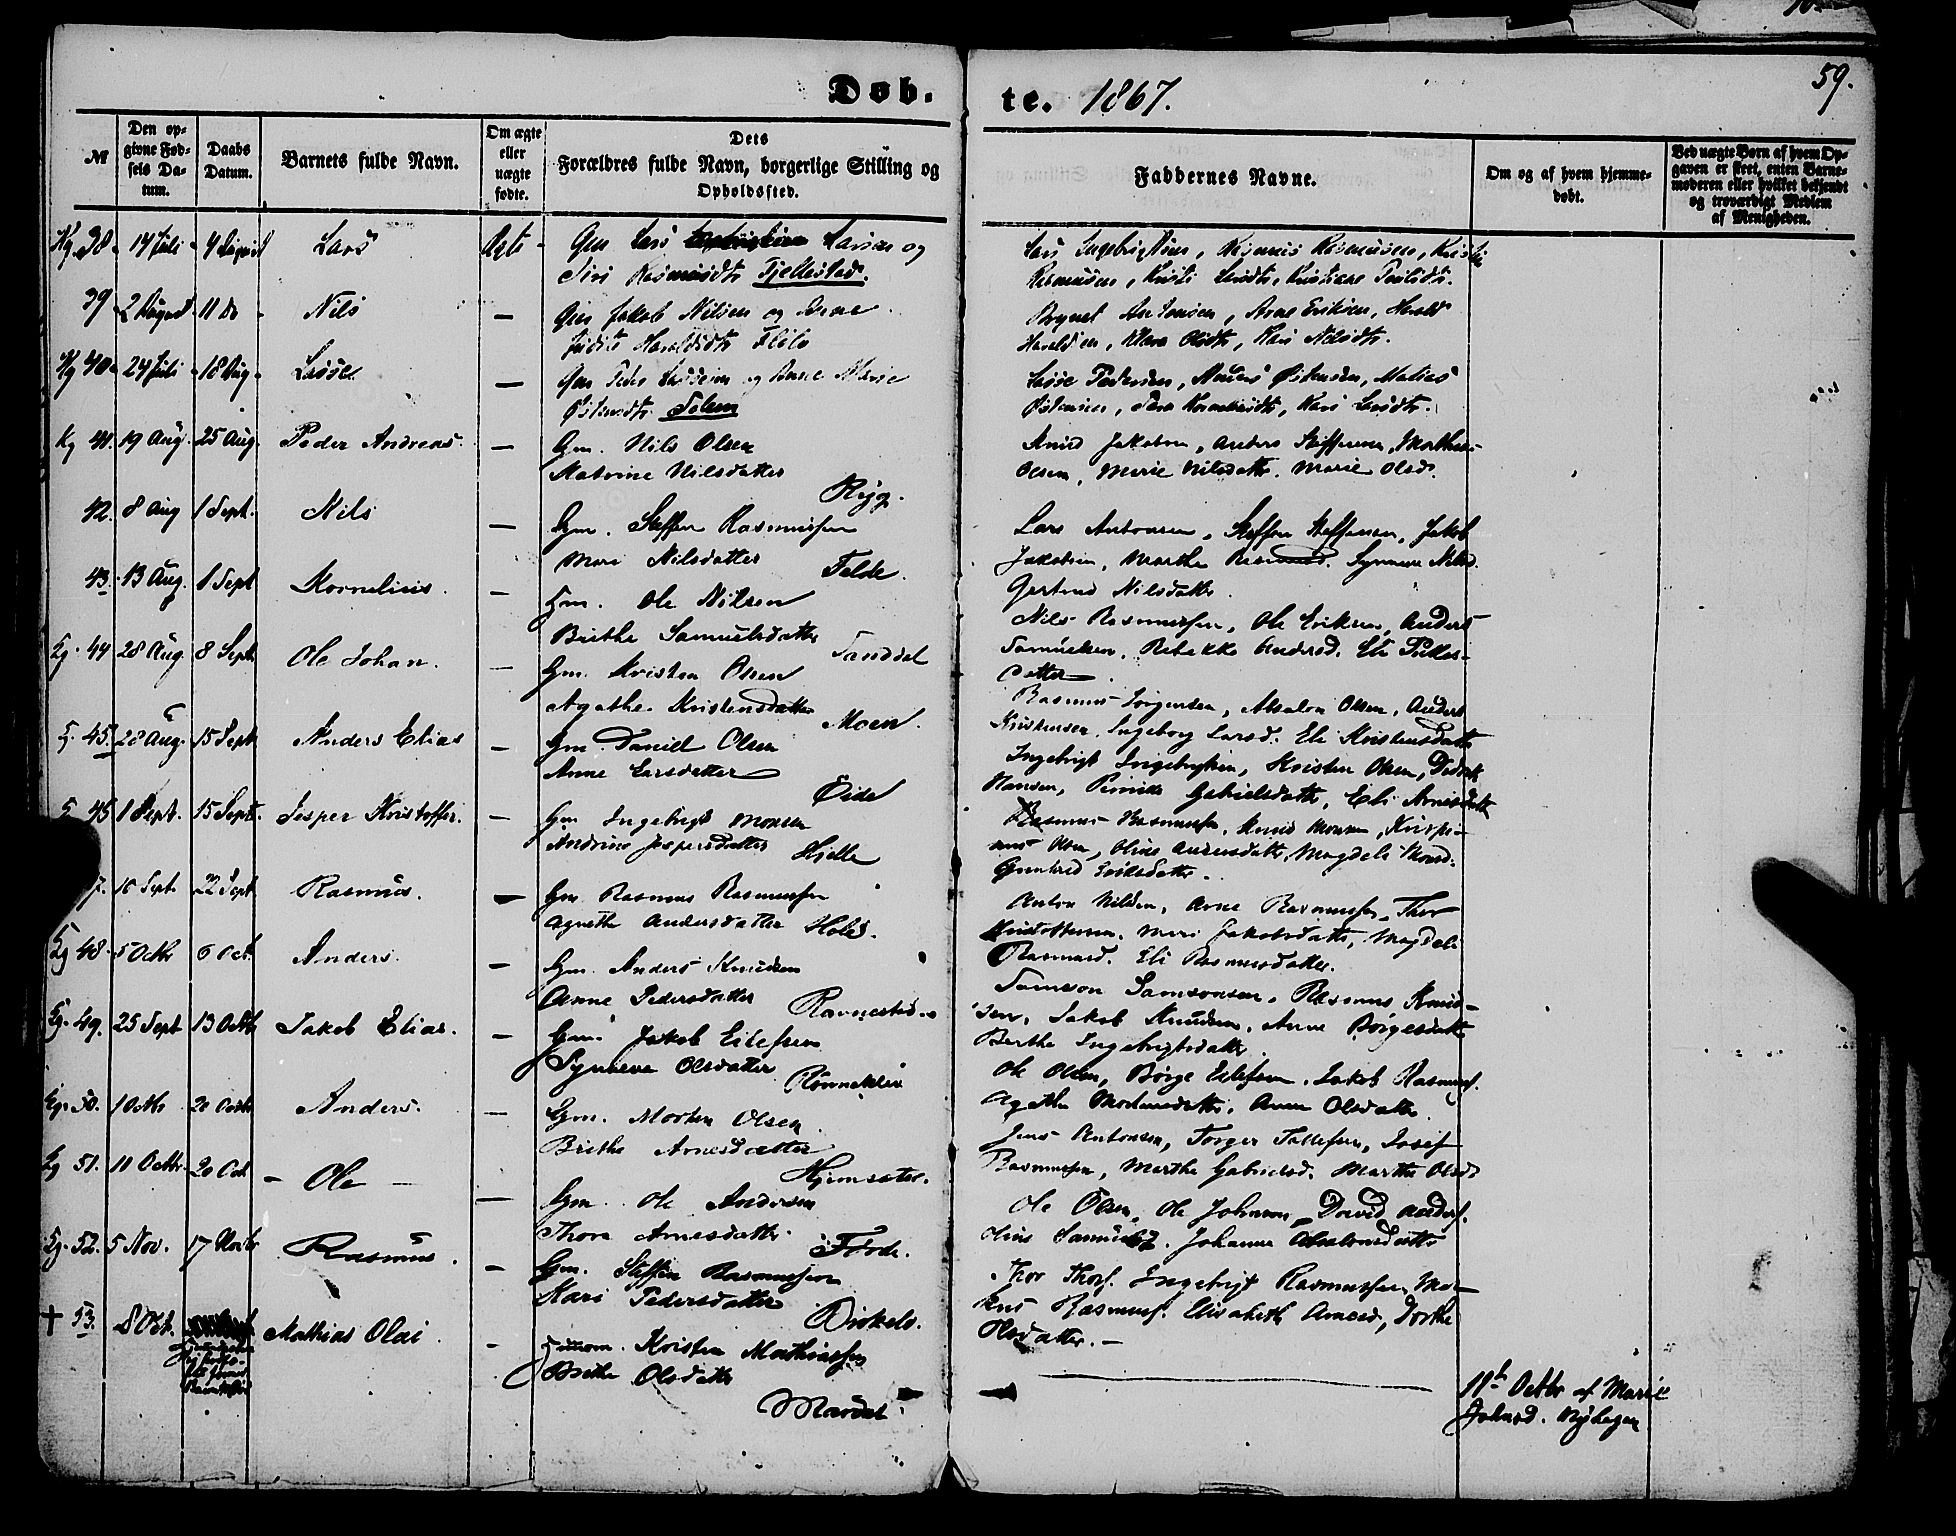 59.
Døb. te. 1867.
№
Den op-
givne Fød-
sels Da-
tum.
Daabs
Datum.
Barnets fulde Navn.
Om ægte
eller
uægte
fødte.
Dets
Forældres fulde Navn, borgerlige Stilling og
Opholdssted.
Faddernes Navne.
Om og af hvem hjemme-
døbt.
Ved uægte Børn af hvem Op-
gaven er skeet, enten Barne-
moderen eller hvilket bekjendt
og troværdigt Medlem
af Menigheden.
38 14 Juli 4 August Lars Ægte Gm Lars Larsen og
Siri Rasmusdtr Fjellestad.
Lars Ingebrigtsen, Rasmus Rasmussen,
Rasmussen, Kristi Larsdtr,
39 2 August 11 Do Nils — Gm Jakob Nilsen og Anne
Haraldsdtr
Arne Eriksen, Harald
Haraldsen, Olsdtr, Kari Nilsdtr.
40 24 Juli 18 Aug Lasse — Gm Peder Lassesen og Anne Marie
Østensdtr Solem
Lasse Pedersen, Østensen, Matias
Østensen, Kari Larsdtr.
41. 19 Aug 25 Aug. Peder Andreas — Gm. Nils Olsen
Matrine Nilsdatter
Ryg.
Knud Jakobsen, Anders Steffensen,
Olsen, Marie Nilsdatter. Marie Olsd.
42. 8 Aug 1 Sept. Nils — Gm. Steffen Rasmussen
Mari Nilsdatter
Felde.
Lars Antonsen, Steffen Steffensen, Jakob
Jakobsen, Marthe Rasmusd. Synneve Nilsd.
Gertrud Nilsdatter.
43. 13 Aug. 1 Sept Kornelius. — Gm. Ole Nilsen
Brithe Samuelsdatter
Sanddal
Nils Rasmussen, Ole Eriksen, Anders
Samuelsen, Rebekka Andersd. Eli
datter.
44 28 Aug 8 Sept Ole Johan. — Gm. Kristen Olsen
Agathe Kristensdatter
Moen.
Rasmus Jørgensen, Absalon Olsen, Anders
Kristensen, Ingeborg Larsd. Eli Kristensdatter
45. 28 Aug. 15 Sept Anders Elias — Gm. Daniel Olsen
Anne Larsdatter
Eide
Ingebrigt Ingebrigtsen, Kristen Olsen,
Hansen, Gabrielsdatter, Eli Arnesdatter
45 1 Sept. 15 Sept. Jesper Kristoffer. — Gm Ingebrigt Monsen
Andrine Jespersdatter
Hjelle
Rasmus Rasmussen, Knud Monsen, Krispi-
nus Olsen, Oline Andersdatter, Magdeli Monsd.
Eriksdatter.
7. 10 Sept 22 Sept Rasmus. — Gm Rasmus Rasmussen
Agnethe Andersdatter Holed.
Anton Nilsen, Arne Rasmussen, Thor
Kristoffersen, Mari Jakobsdatter, Magdeli
Rasmusd. Eli Rasmusdatter.
48. 5 Octbr 6 Oct. Anders. — Gm. Anders Knudsen
Anne Pedersdatter
Ravnestad
Samson Samsonsen, Rasmus Knud-
sen, Jakob Knudsen, Anne Børgesdatter
Berthe Ingebrigtsdatter.
49. 25 Sept 13 Octb Jakob Elias. — Gm. Jakob Eilefsen
Synneve Olsdatter
Rønneklev
Ole Olsen, Børge Eilefsen, Jakob Rasmusf.
Agathe Mortensdatter, Anne Olsdatter.
50. 1 Octbr 20 Octbr Anders. — Gm. Morten Olsen
Brithe Arnesdatter
Hjemsæter.
Jens Antonsen, Torger Tollefsen, Josef
Rasmussen, Marthe Gabrielsd. Marthe Olsd
51. 11 Octbr. 20 Oct – Ole – — Gm. Ole Andersen
Thora Arnesdatter
Førde.
Ole Olsen, Ole Johnsen, David Andersf.
Oline Johanne Absalonsdatter
52. 5 Nov. 17 Novbr Rasmus. — Gm. Steffen Rasmussen
Kari Pedersdatter
Birkelo.
Thor Thorf. Ingebrigt Rasmussen, Mar-
kus Rasmusf. Elisabeth Arnesd, Dorthe
Olsdatter. —
† 53. 8 Oct. Mathias Olai. — Gm. Kristen Mathiassen
Brithe Olsdatter
Mardal.
11t Octbr af Marie
Johnsd. Myhagen